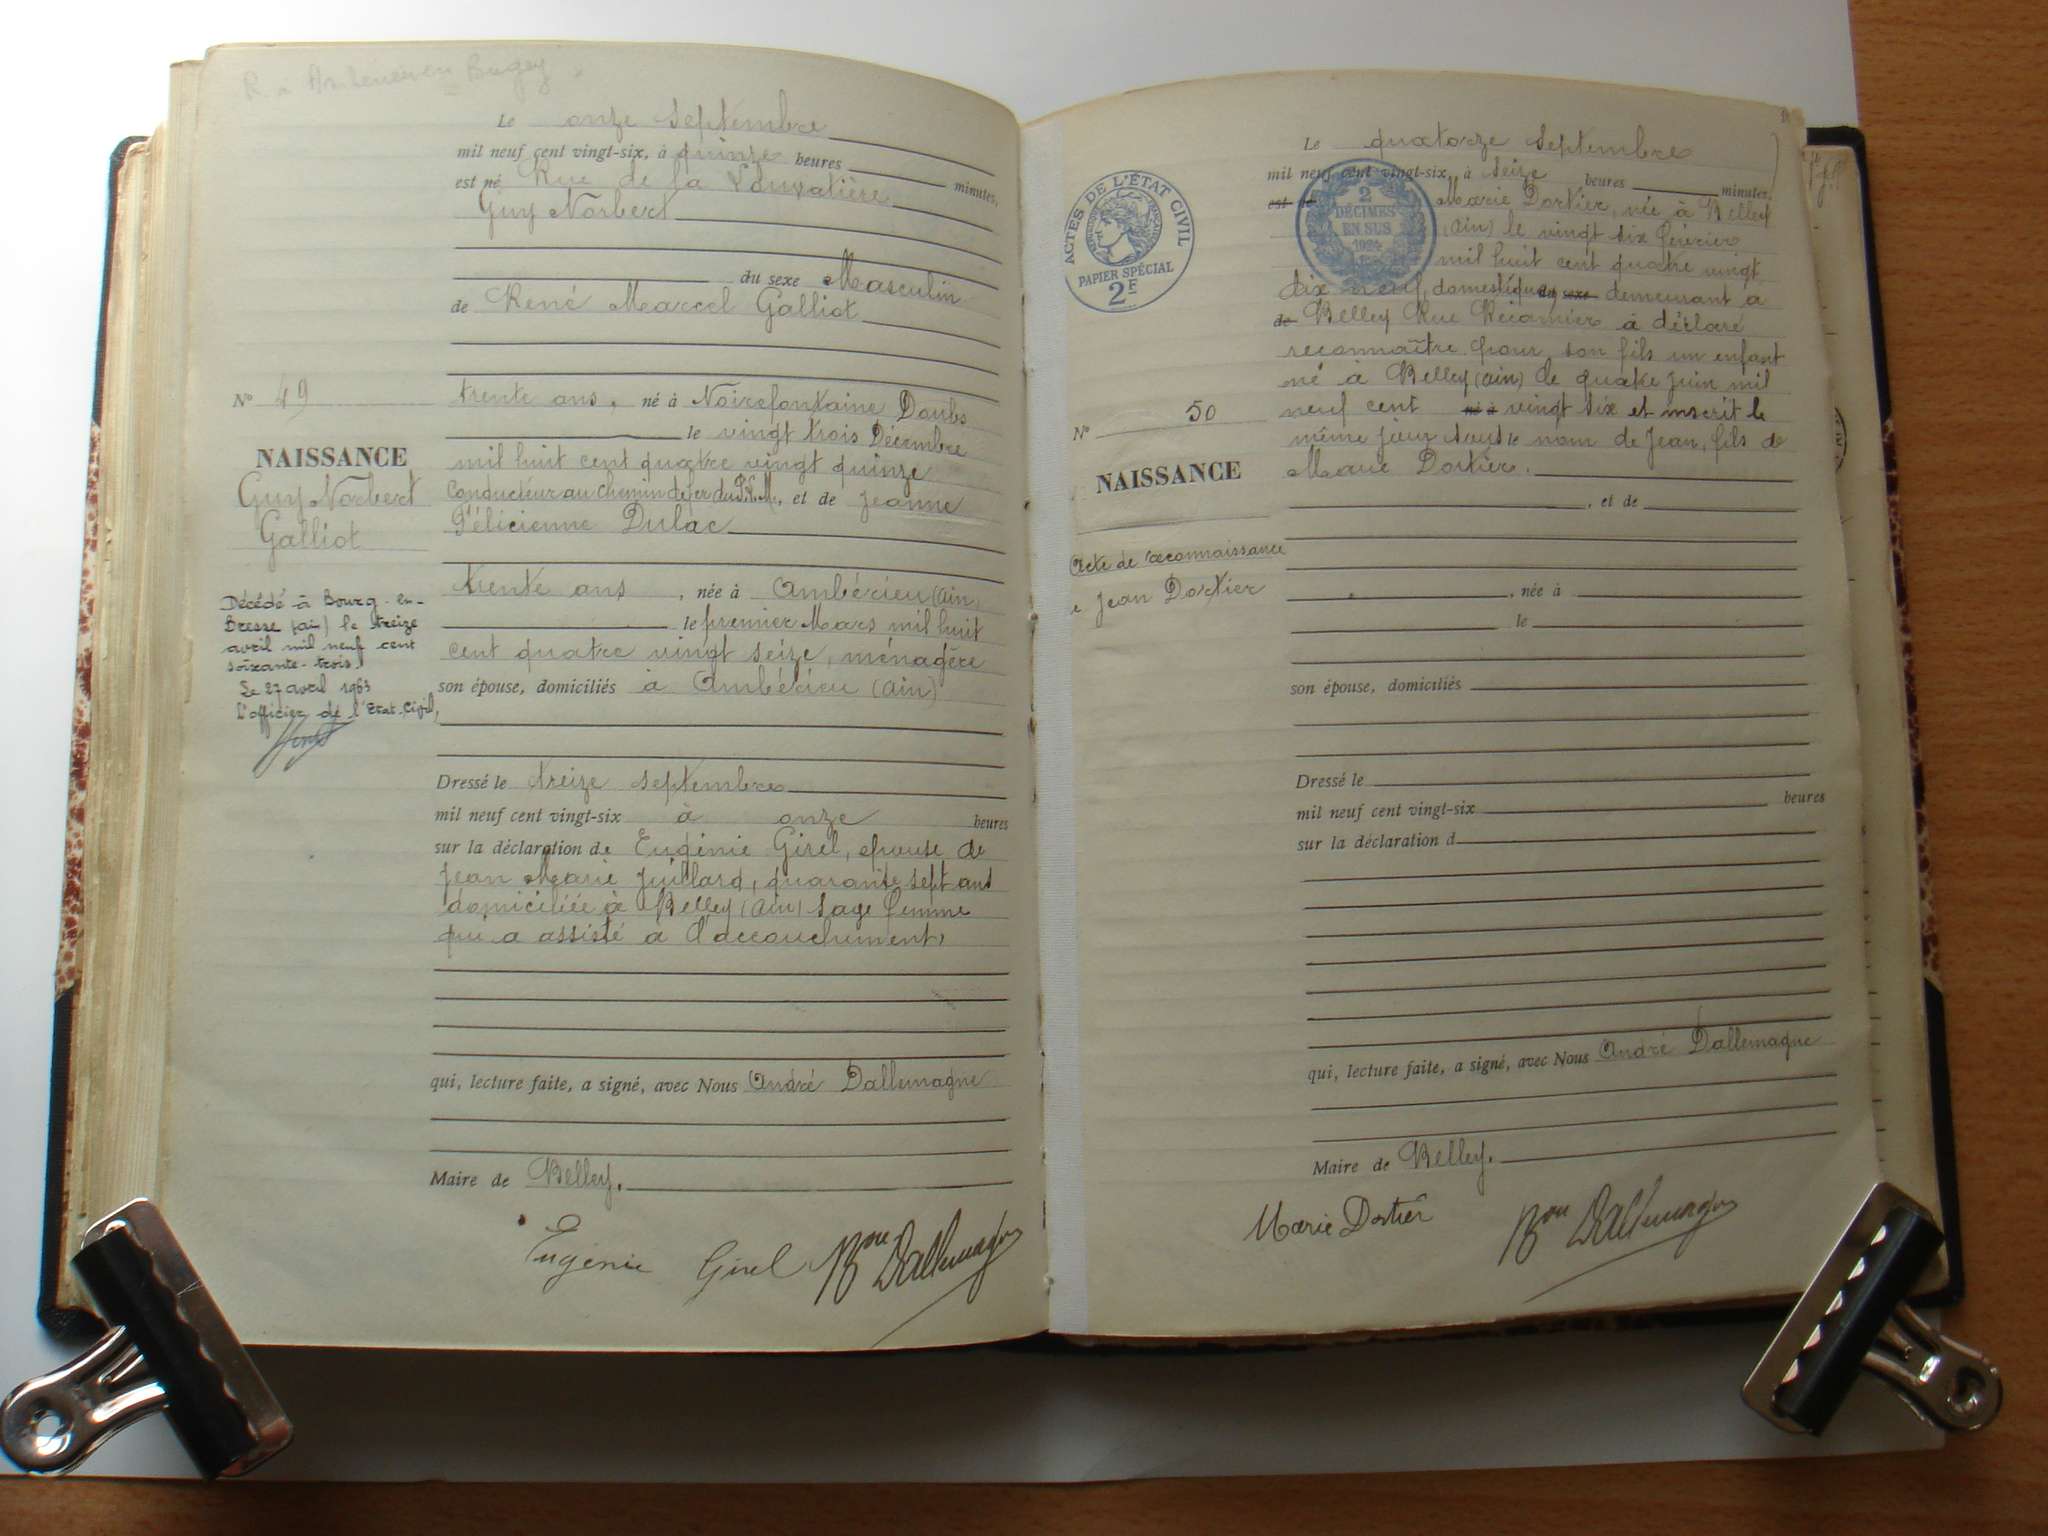 R. à Ambérieu en Bugey
Le onze septembre
mil neuf cent vingt-six, à quinze heures minutes,
est né Rue de la Louvatière
Guy Norbert
du sexe Masculin
de René Marcel Galliot
trente ans, né à Noirefontaine Doubs
le vingt trois Décembre
mil huit cent quatre vingt quinze
Conducteur au chemin de fer du P.L.M., et de Jeanne
Félicienne Dulac
trente ans, née à Ambérieu (Ain)
le premier Mars mil huit
cent quatre vingt seize, ménagère
son épouse, domiciliés à Ambérieu (Ain)
Dressé le treize septembre
mil neuf cent vingt-six à onze heures
sur la déclaration de Eugénie Girel, épouse de
Jean Marie Juillard, quarante sept ans
domiciliée à Belley (Ain) sage femme
qui a assisté à l'accouchement,
qui, lecture faite, a signé, avec Nous André Dallemagne
Maire de Belley.
Eugénie Girel Bon Dallemagne
N° 49
NAISSANCE
Guy Norbert
Galliot
Décédé à Bourg-en-
Bresse (Ain) le treize
avril mil neuf cent
soixante-trois
Le 27 avril 1963
L'officier de l'Etat-Civil,
ACTES DE L'ÉTAT CIVIL
RÉPUBLIQUE FRANÇAISE
PAPIER SPÉCIAL
2F
2
DÉCIMES
EN SUS
1924
Le quatorze septembre
mil neuf cent vingt-six, à seize heures minutes,
est né Marie Dortier, née à Belley
(Ain) le vingt six février
mil huit cent quatre vingt
dix neuf, domestique du sexe demeurant à
de Belley Rue Récamier à déclaré
reconnaître pour son fils un enfant
né à Belley (Ain) le quatre juin mil
neuf cent né à vingt six et inscrit le
même jour sous le nom de Jean, fils de
Marie Dortier.
, et de
, née à
le
son épouse, domiciliés
Dressé le
mil neuf cent vingt-six heures
sur la déclaration d
qui, lecture faite, a signé, avec Nous André Dallemagne
Maire de Belley.
Marie Dortier Bon Dallemagne
N° 50
NAISSANCE
Acte de reconnaissance
Jean Dortier